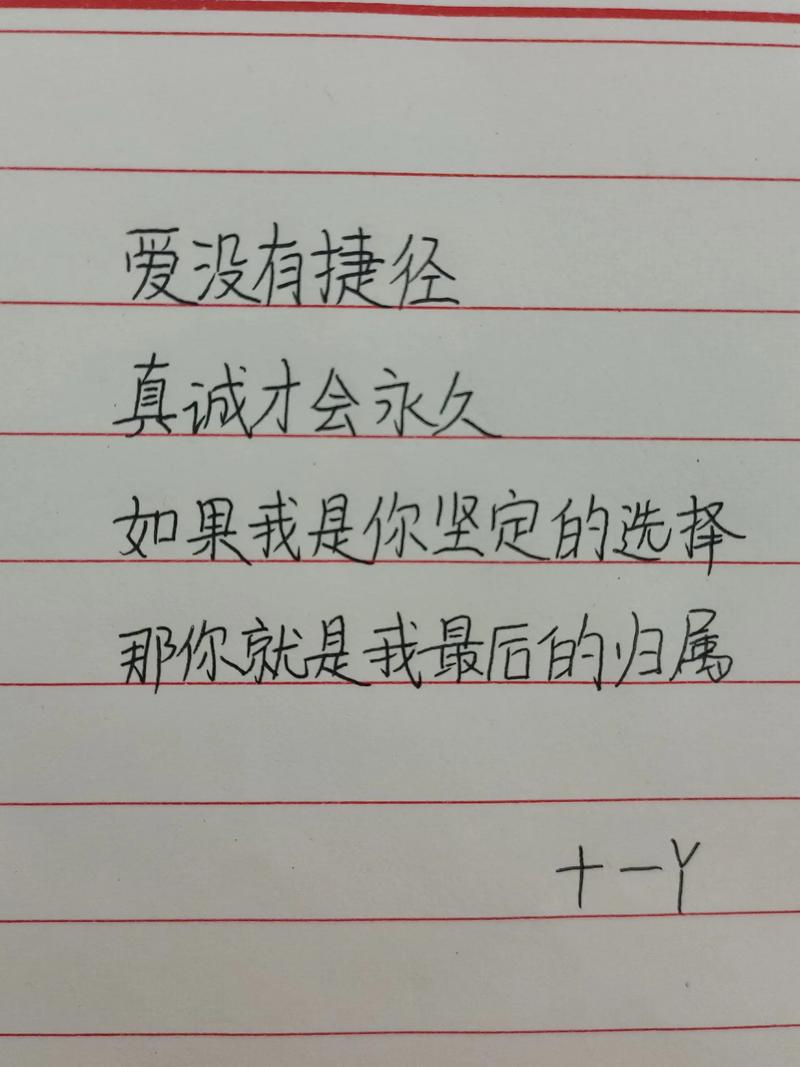 爱没有捷径
真诚才会永久
如果我是你坚定的选择
那你就是我最后的归属
十一Y